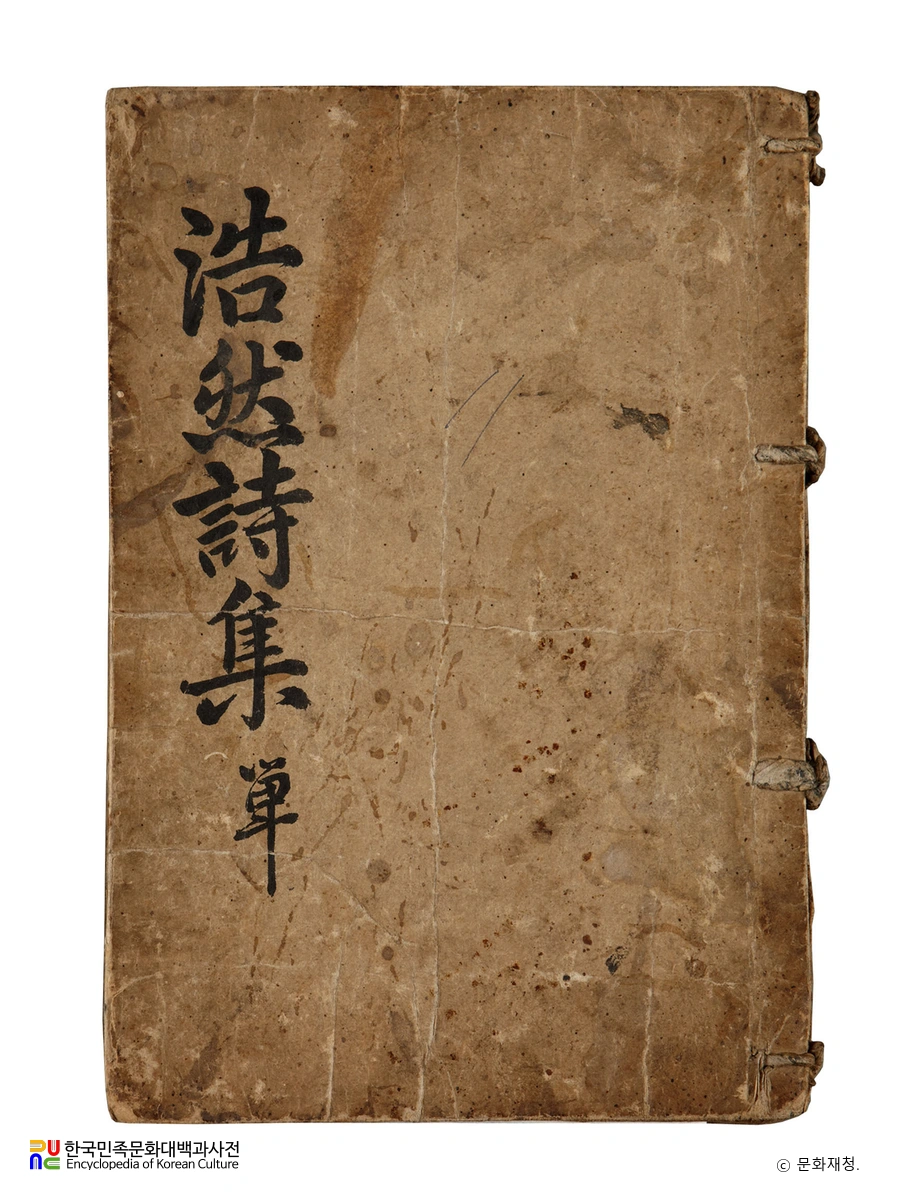 浩然詩集
単
한국민족문화대백과사전
Encyclopedia of Korean Culture
ⓒ 문화재청.